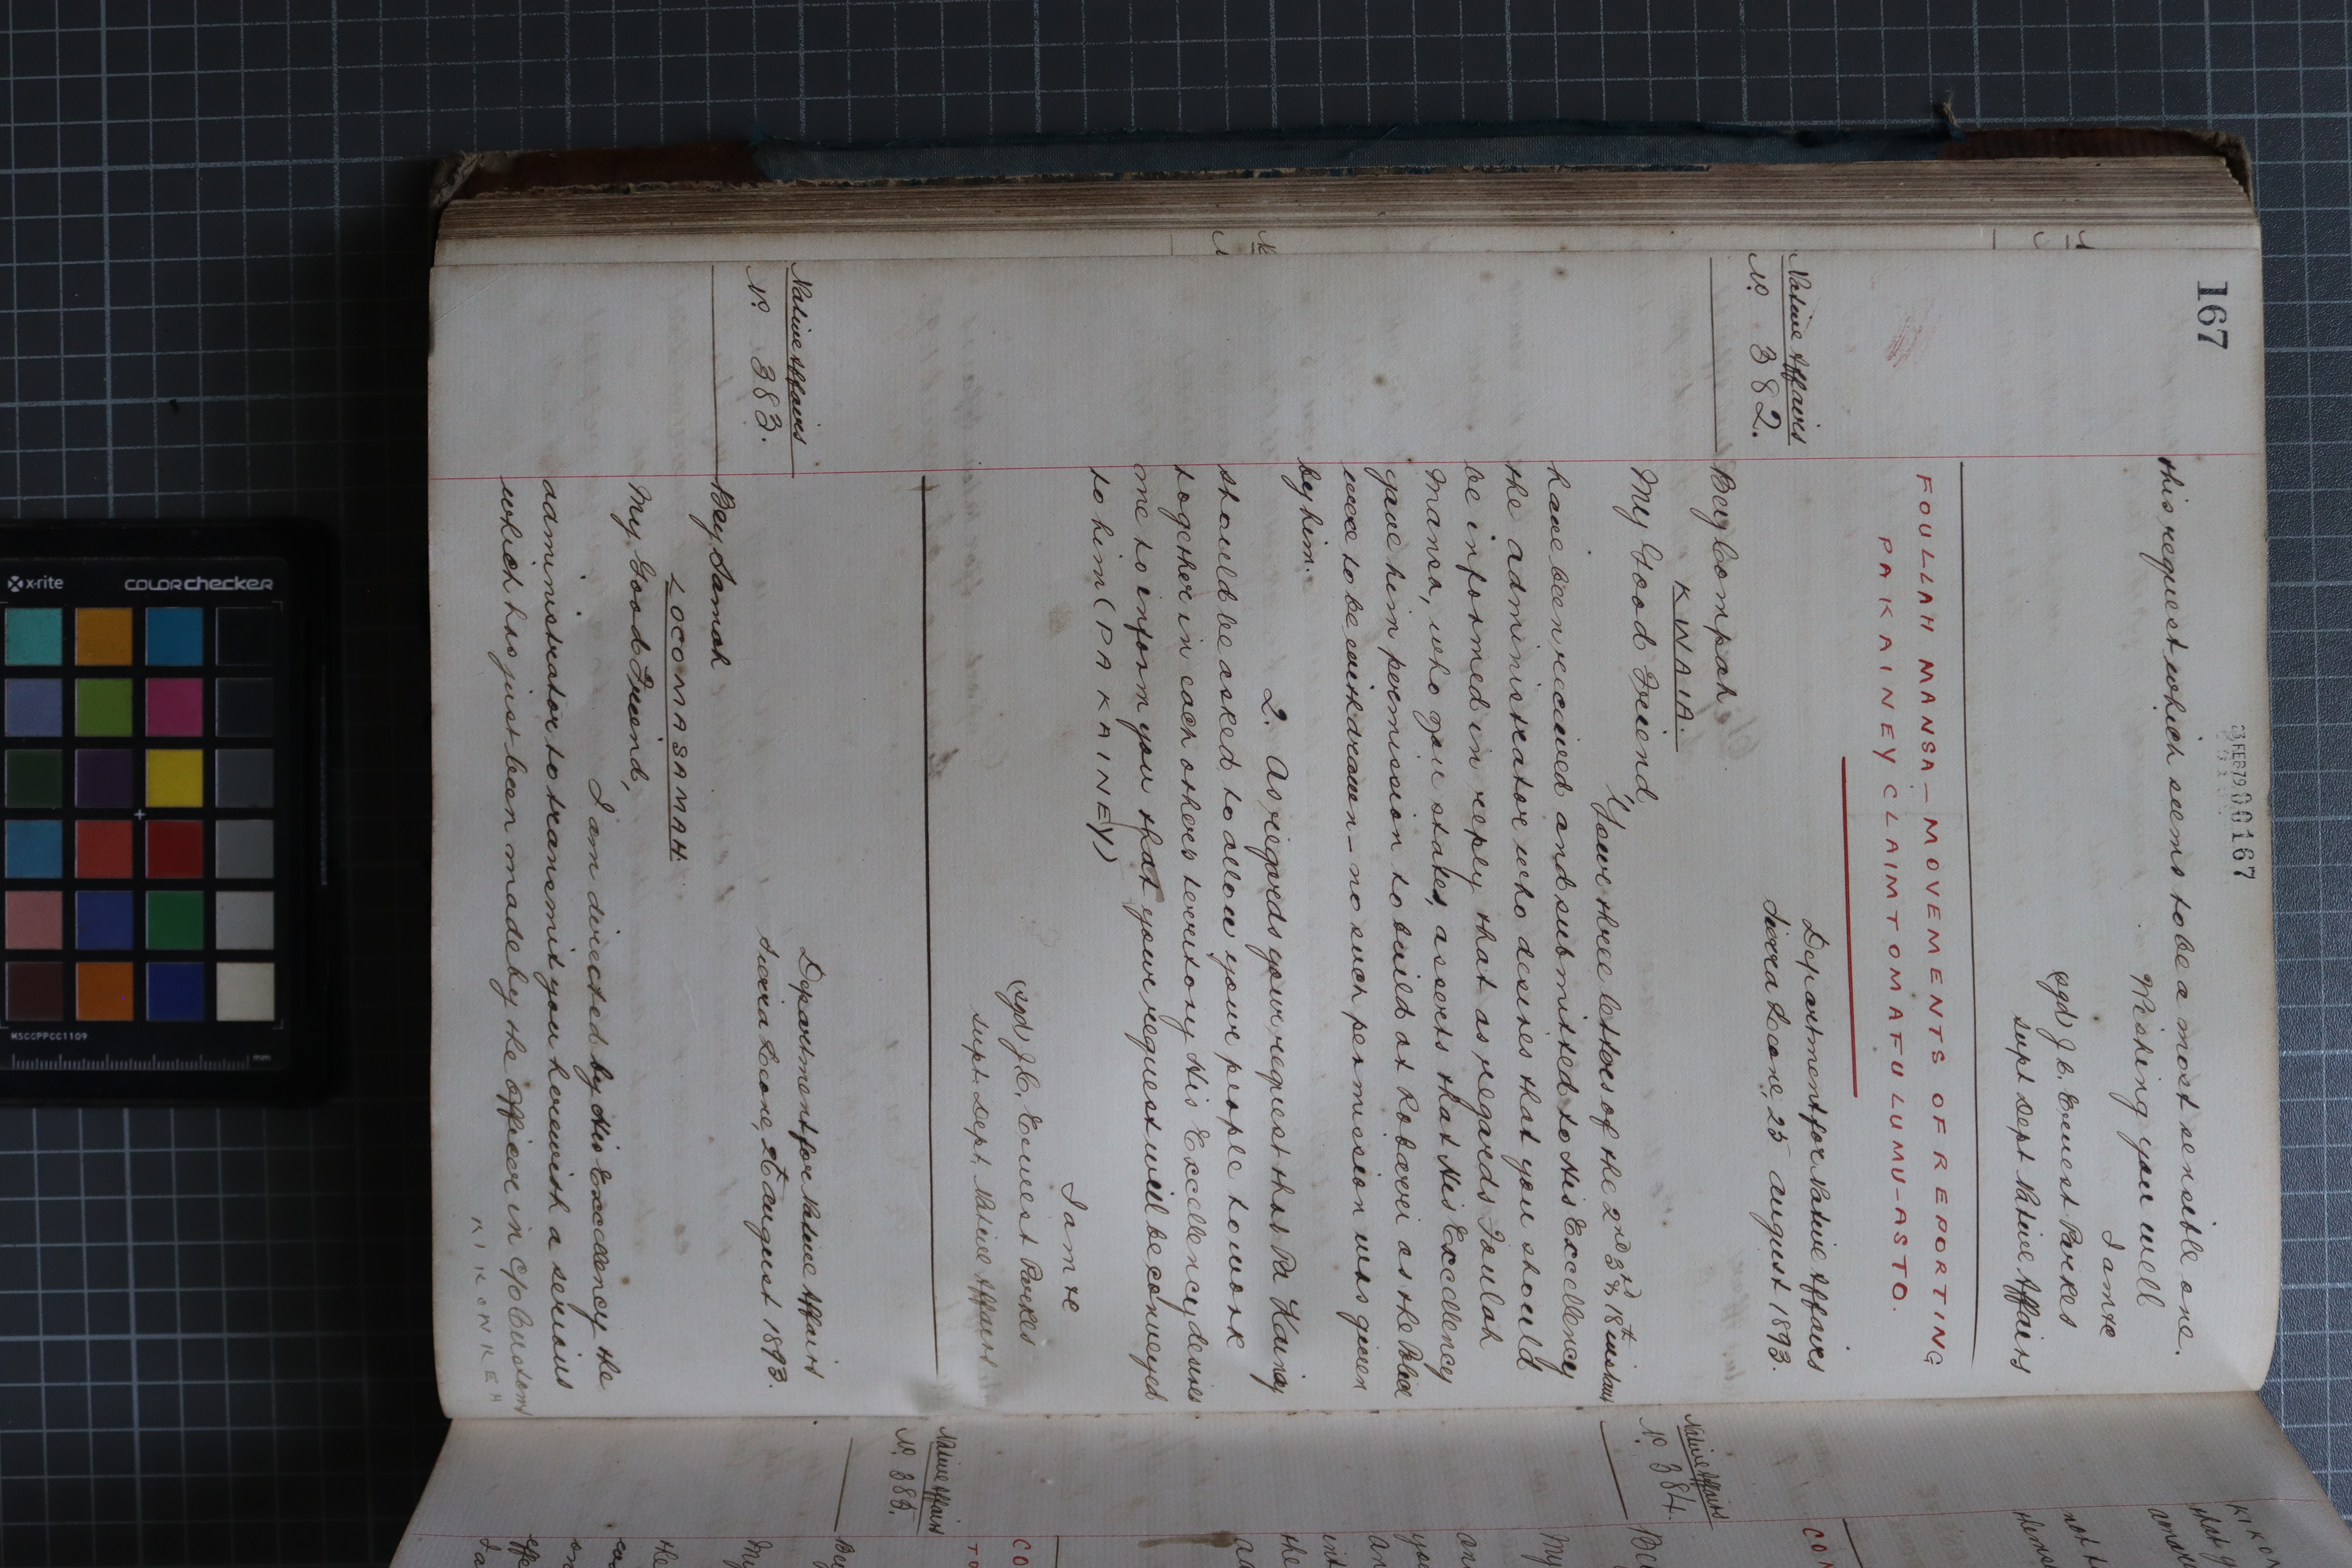 167
23 FEB 79 00167
this request which seems to be a most sensible one.
Wishing you well
I am &c
(sgd) J. C. Ernest Parkes
Supt Dept Native Affairs
FOULLAH MANSA — MOVEMENTS OF REPORTING
PA KAINEY CLAIM TO MAFULUMU - AS TO.
Native Affairs
No. 382.
Department for Native Affairs
Sierra Leone, 25 August 1893.
Bey Compah
KWAIA.
My Good Friend,
Your three letters of the 2nd 3rd & 18th instant
have been received and submitted to His Excellency
the administrator who desires that you should
be informed in reply that as regards Foulah
Mansa, who you states, asserts that His Excellency
gave him permission to build at Robarrei as the Blad
were to be withdrawn — no such permission was given
by him.
2. As regards your request that Pa Kainy
should be asked to allow your people to work
together in each others territory His Excellency desires
me to inform you that your request will be conveyed
to him (PA KAINEY)
I am &c
(sgd) J. C. Ernest Parkes
Supt. Dept. Native Affairs
Native Affairs
No. 383.
Department for Native Affairs
Sierra Leone, 26th August 1893.
Bey Samah
LOCOMASAMAH.
My Good Friend,
I am directed by His Excellency the
administrator to transmit you herewith a serious
which has just been made by the officer in c/o Customs
KIKONKEH
Native Affairs
No. 384.
Native Affairs
No. 385.